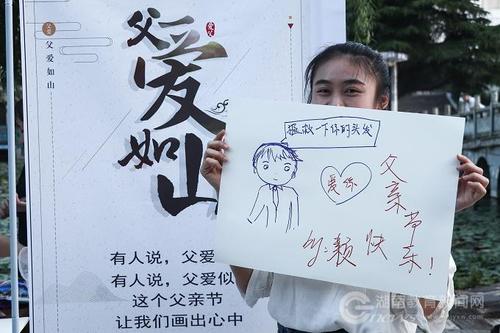 父爱如山
父爱如山
有人说，父爱
有人说，父爱似
这个父亲节
让我们画出心中
拯救一下你的头发
爱你
父亲节
快乐!
by:颖
湖南教育新闻网